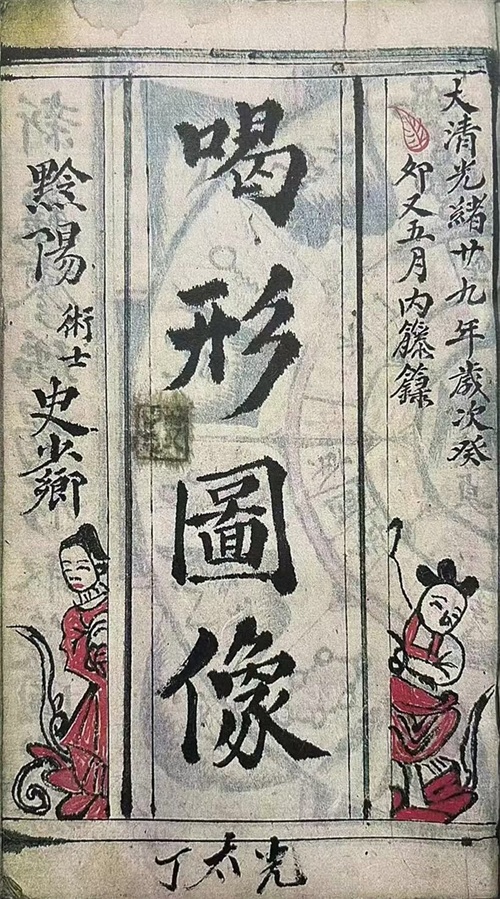 大清光緒廿九年歲次癸
卯又五月內籐籙
喝形圖像
黔陽
術士
史少卿
丁太光